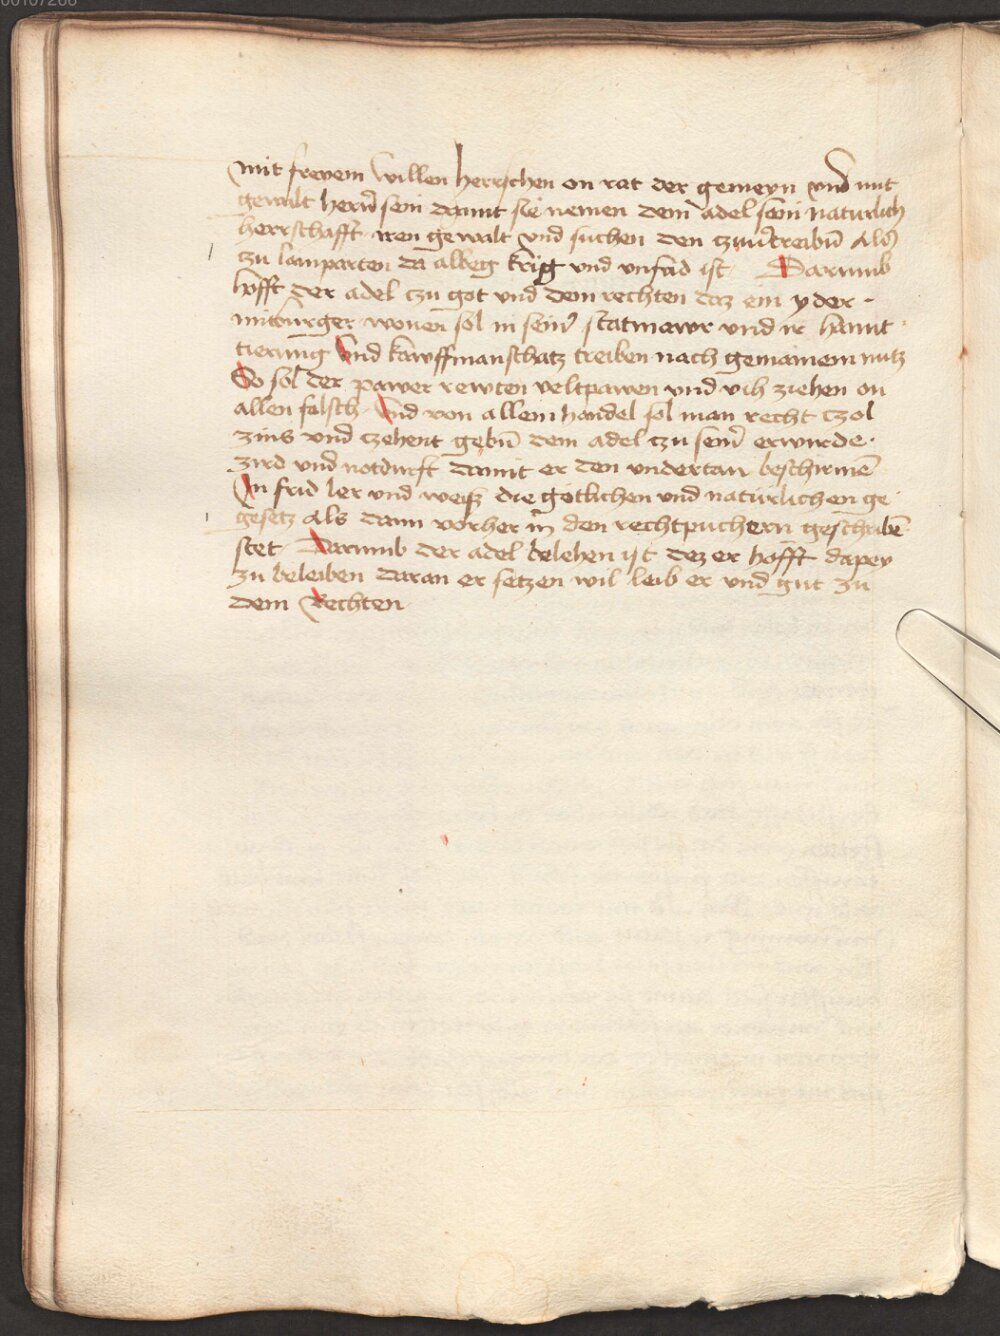 00107206
mit freyem willen herrschen on rat der gemeyn vnd mit
gewalt herñ sein damit sie nemen dem adel sein naturlich
herrschafft iren gewalt vnd suchen den
zu lamparten da albeg krig vnd vnfrid ist Darumb
hofft der adel czu got vnd dem rechten daz ein yder
mitburger wonen sol in seiner statmawr vnd ir hannt
tierung Vnd kawffmanschatz treiben nach gemainem nutz
So sol der pawer rewten veltpawen vnd vih ziehen on
allen falsch Vnd von allem handel sol man recht czol
zins vnd czehent gebñ dem adel czu seiner erwirde
zird vnd notdurft damit er den vndertan beschirmē
In frid ler vnd weiß die gotlichen vnd naturlichen ge
gesetz als dann vorher in den rechtpuchern geschribē
stet Darumb der adel belehen ist dez er hofft dapey
zu beleiben daran er setzen wil leib er vnd gut zu
dem Rechten